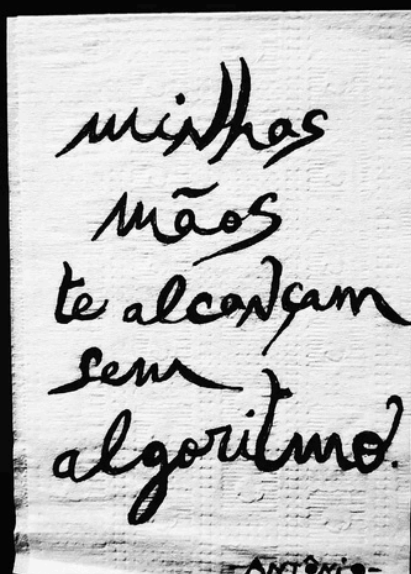 minhas
mãos
te alcançam
sem
algoritmo.
- Antônio -